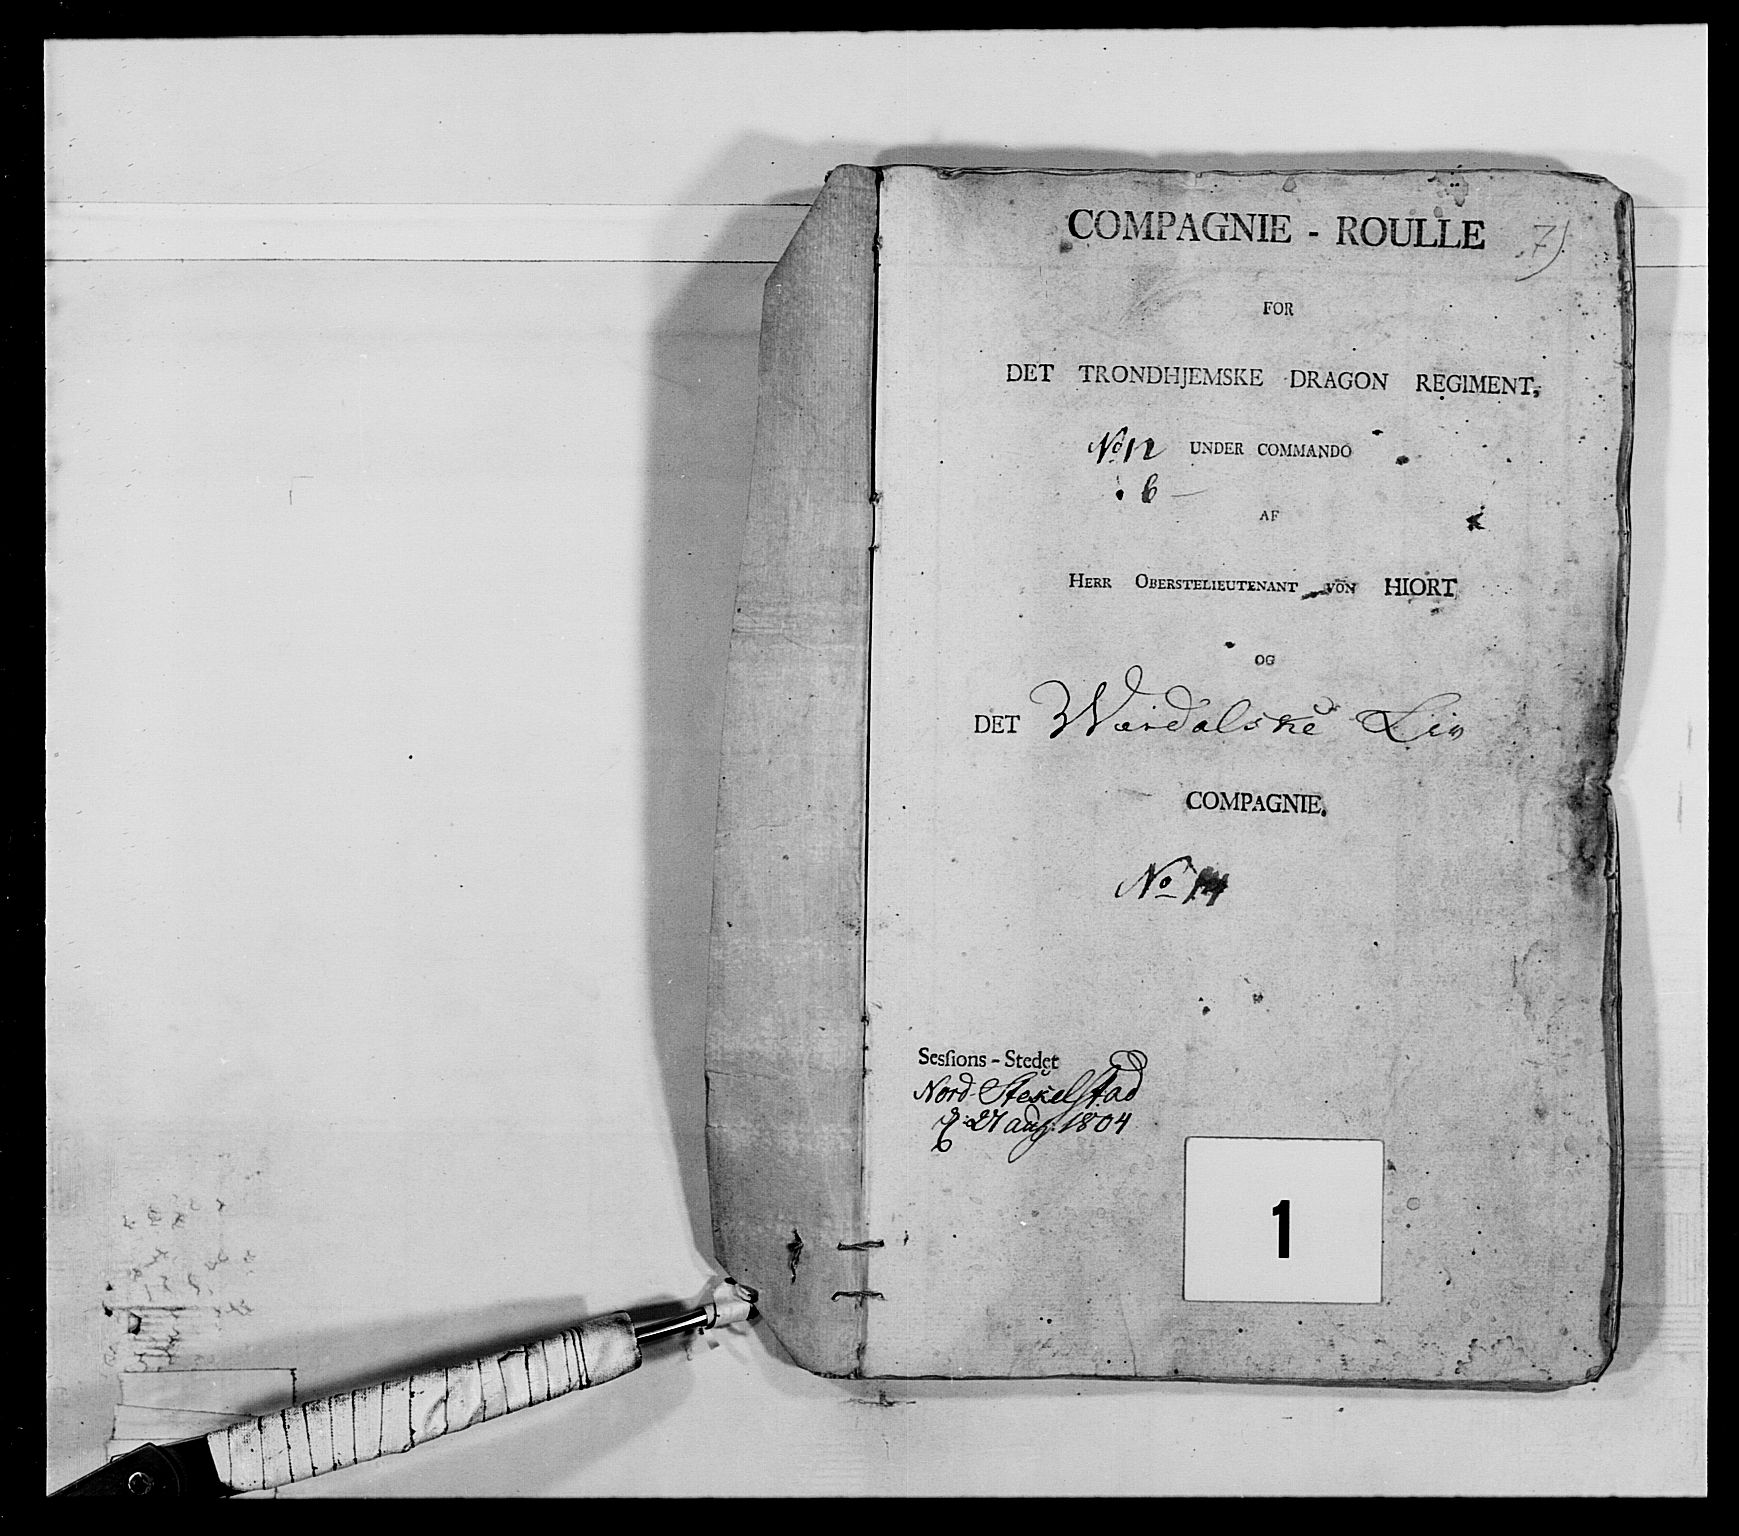 COMPAGNIE - ROULLE 7)
FOR
DET TRONDHJEMSKE DRAGON REGIMENT,
No 12 UNDER COMMANDO
6
AF
HERR OBERSTELIEUTENANT VON HIORT
OG
DET Wærdalske Liv
COMPAGNIE.
No
Sesſions-Stedet
Nord Stekelstad
d: 27 aug: 1804
1